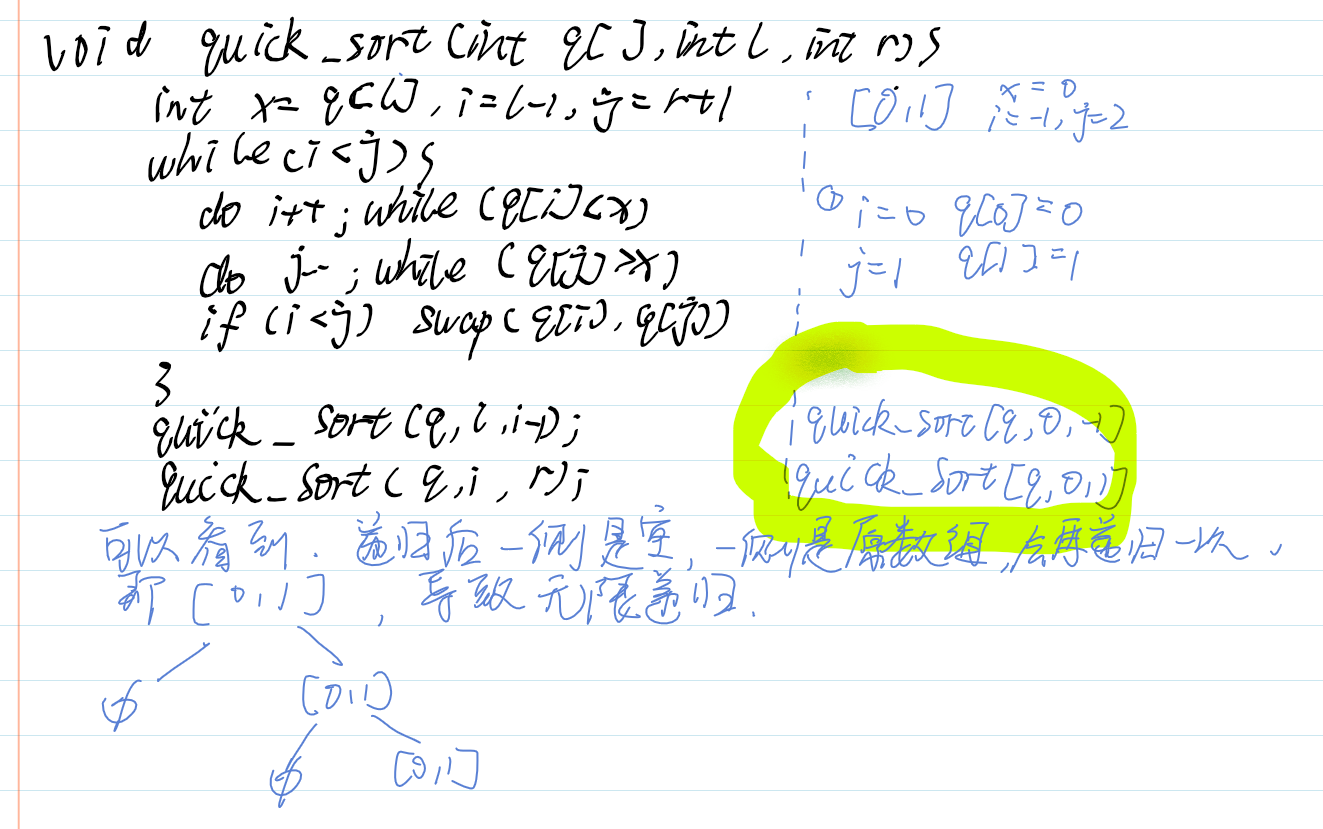 void quick_sort(int q[], int l, int r){
int x = q[l], i=l-1, j=r+1
while(i<j){
do i++; while(q[i]<x)
do j--; while(q[j]>x)
if(i<j) swap(q[i],q[j])
}
quick_sort(q,l,i-1);
quick_sort(q,i,r);
[0,1] x=0
i=-1, j=2
① i=0 q[0]=0
j=1 q[1]=1
quick_sort[q,0,-1]
quick_sort[q,0,1]
可以看到. 递归后一侧是空, 一侧是原数组, 会再递归一次、
即 [0,1] , 导致无限递归.
∅ [0,1]
∅ [0,1]